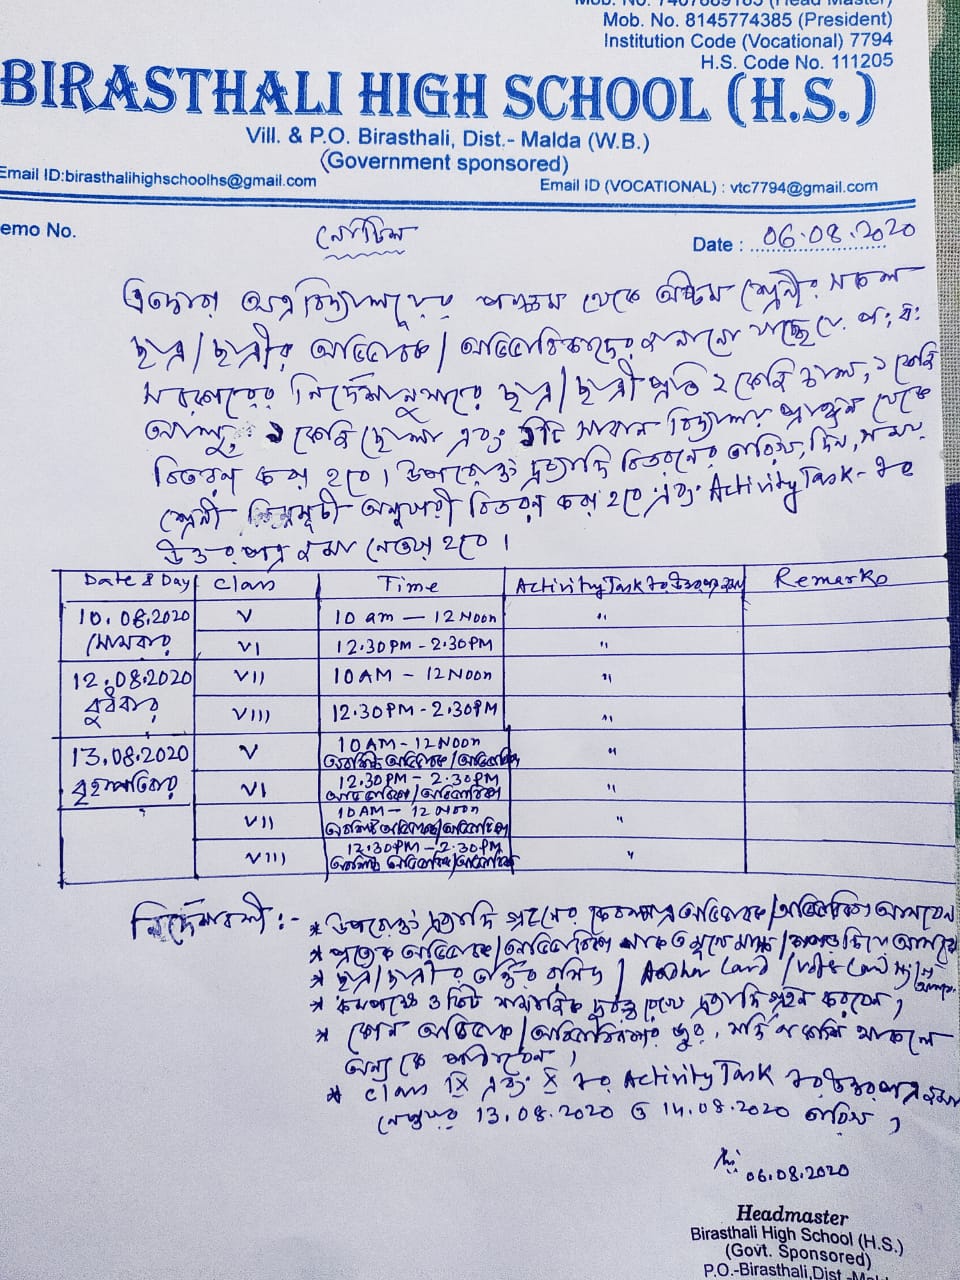 Mob. No. 8145774385 (President)
Institution Code (Vocational) 7794
H.S. Code No. 111205
BIRASTHALI HIGH SCHOOL (H.S.)
Vill. & P.O. Birasthali, Dist.- Malda (W.B.)
(Government sponsored)
Email ID:birasthalihighschoolhs@gmail.com
Email ID (VOCATIONAL) : vtc7794@gmail.com
emo No.
নোটিশ
Date : 06.08.2020
এতদ্বারা অত্র বিদ্যালয়ের পঞ্চম থেকে অষ্টম শ্রেনীর সকল
ছাত্র/ছাত্রীর অভিভাবক/অভিভাবিকাদের জানানো যাচ্ছে যে, প: ব:
সরকারের নির্দেশানুসারে ছাত্র/ছাত্রী প্রতি ২ কেজি চাল, ১ কেজি
আলু, ১ কেজি ছোলা এবং ১টি সাবান বিদ্যালয় প্রাঙ্গন থেকে
বিতরণ করা হবে। উপরোক্ত দ্রব্যাদি বিতরনের তারিখ, দিন, সময়
শ্রেনী অনুযায়ী বিতরণ করা হবে এবং Activity Task-এর
উত্তরপত্র জমা নেওয়া হবে।
Date & Day Class Time Activity Task এর উত্তরপত্র জমা Remarks
10.08.2020 V 10 am — 12 Noon "
সোমবার VI 12.30 PM - 2.30 PM "
12.08.2020 VII 10 AM - 12 Noon "
বুধবার VIII 12.30 PM - 2.30 PM "
13.08.2020 V 10 AM - 12 Noon "
অবশিষ্ট অভিভাবক/অভিভাবিকা
বৃহস্পতিবার VI 12.30 PM - 2.30 PM "
অভিভাবক/অভিভাবিকা
VII 10 AM - 12 Noon "
অবশিষ্ট অভিভাবক/অভিভাবিকা
VIII 12.30 PM - 2.30 PM "
অবশিষ্ট অভিভাবক/অভিভাবিকা
নির্দেশাবলী :-
* উপরোক্ত দ্রব্যাদি গ্রহনের কেবলমাত্র অভিভাবক/অভিভাবিকা আসবেন
* প্রত্যেক অভিভাবক/অভিভাবিকা নাক ও মুখে মাস্ক/কাপড় দিয়ে
* ছাত্র/ছাত্রীর ভর্তির রসিদ / Aadhar Card /
* কমপক্ষে ৩ ফিট সামাজিক দূরত্ব রেখে দ্রব্যাদি গ্রহন করবেন।
* কোন অভিভাবক/অভিভাবিকার জ্বর, সর্দি কাশি থাকলে
অন্য কে পাঠাবেন।
* Class IX এবং X এর Activity Task এর উত্তরপত্র জমা
নেওয়া হবে 13.08.2020 ও 14.08.2020 তারিখ।
06.08.2020
Headmaster
Birasthali High School (H.S.)
(Govt. Sponsored)
P.O.-Birasthali, Dist.-